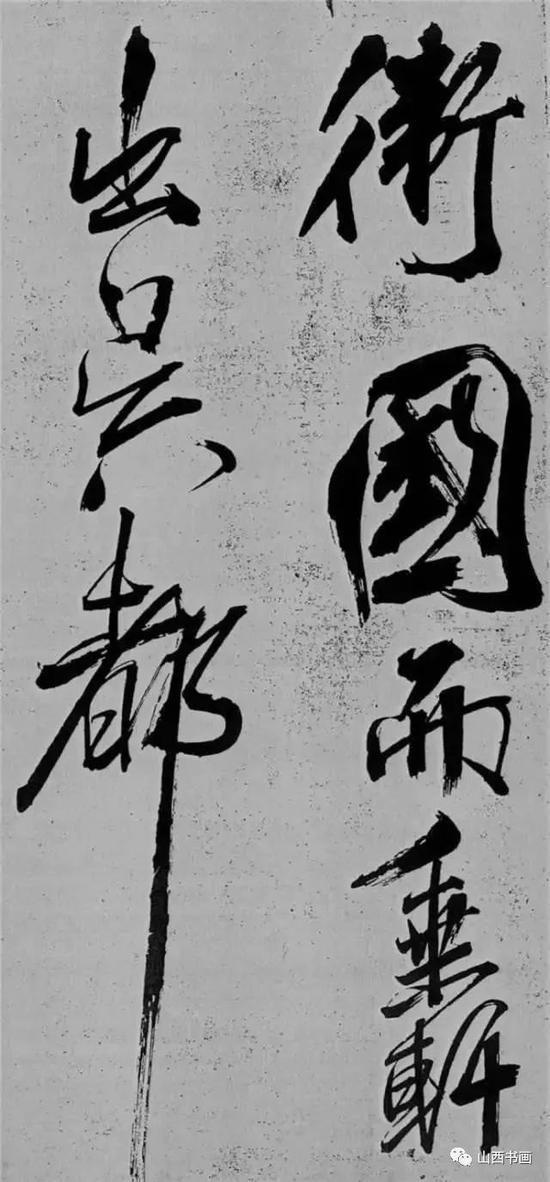 衛國而乗軒
出吳都
山西书画